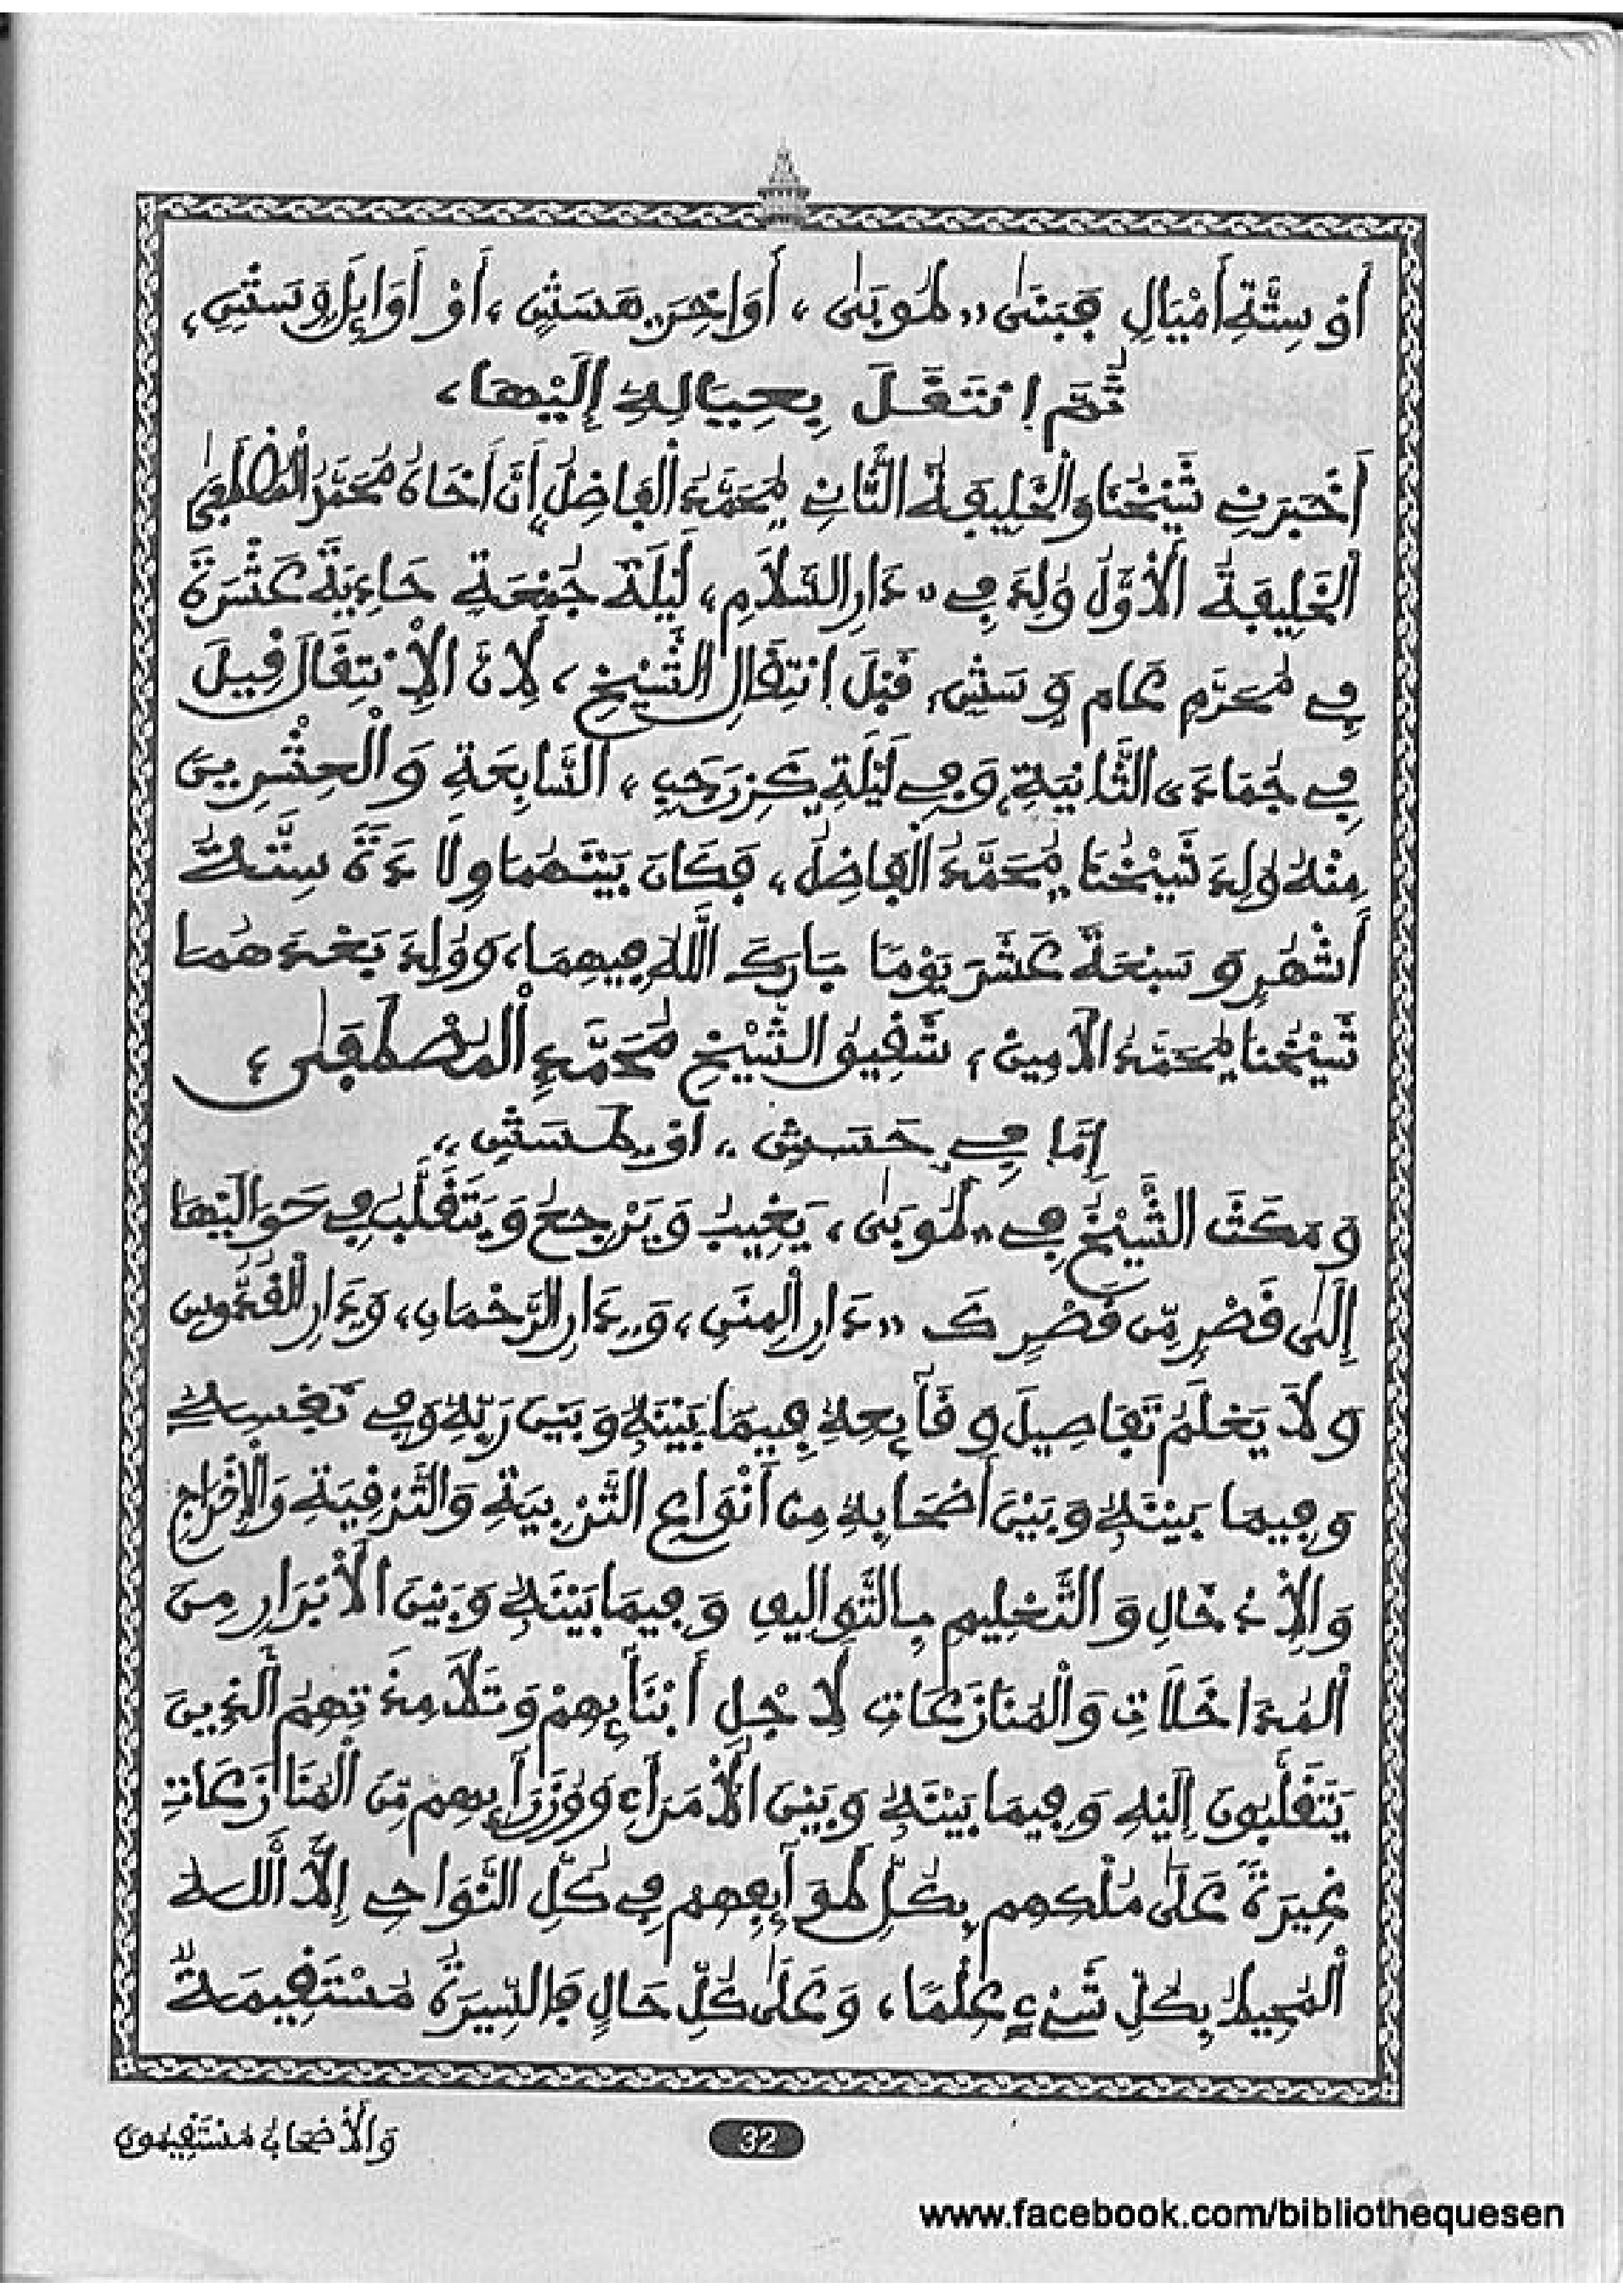 أَوْ سِتَّةِ أَمْيَالٍ فَبَنَى «طُوبَى» أَوَاخِرَ هَسَشٍ، أَوْ أَوَائِلَ وَسَشٍ،
ثُمَّ انْتَقَلَ بِعِيَالِهِ إِلَيْهَا،
أَخْبَرَنِي شَيْخُنَا وَالْخَلِيفَةُ الثَّانِي مُحَمَّدُ الْفَاضِلُ أَنَّ أَخَاهُ مُحَمَّدَ الْمُصْطَفَى
الْخَلِيفَةَ الْأَوَّلَ وُلِدَ فِي «دَارِ السَّلَامِ» لَيْلَةَ جُمُعَةٍ حَادِيَةَ عَشْرَةَ
فِي مُحَرَّمٍ عَامَ وَسَشٍ، قَبْلَ انْتِقَالِ الشَّيْخِ، لِأَنَّ الِانْتِقَالَ قِيلَ
فِي جُمَادَى الثَّانِيَةِ، وَفِي لَيْلَةِ كَزِ رَجَبٍ، السَّابِعَةِ وَالْعِشْرِينَ
مِنْهُ وُلِدَ شَيْخُنَا مُحَمَّدُ الْفَاضِلُ، فَكَانَ بَيْنَهُمَا وِلَادَةً سِتَّةُ
أَشْهُرٍ وَسَبْعَةَ عَشَرَ يَوْمًا بَارَكَ اللَّهُ فِيهِمَا، وَوُلِدَ بَعْدَهُمَا
شَيْخُنَا مُحَمَّدُ الْأَمِينُ، شَقِيقُ الشَّيْخِ مُحَمَّدٍ الْمُصْطَفَى،
إِمَّا فِي حَسَشٍ، أَوْ طَسَشٍ،
وَمَكَثَ الشَّيْخُ فِي «طُوبَى» يَغِيبُ وَيَرْجِعُ وَيَتَقَلَّبُ فِي حَوَالَيْهَا
إِلَى قَصْرٍ مِّن قَصْرٍ كَ «دَارِ الْمِنَنِ» وَ«دَارِ الرَّحْمَانِ» وَدَارِ الْقُدُّوسِ
وَلَا يَعْلَمُ تَفَاصِيلَ وَقَائِعِهِ فِيمَا بَيْنَهُ وَبَيْنَ رَبِّهِ وَفِي نَفْسِهِ
وَفِيمَا بَيْنَهُ وَبَيْنَ أَصْحَابِهِ مِنْ أَنْوَاعِ التَّرْبِيَةِ وَالتَّرْقِيَةِ وَالْإِخْرَاجِ
وَالْإِدْخَالِ وَالتَّعْلِيمِ بِالتَّوَالِيفِ وَفِيمَا بَيْنَهُ وَبَيْنَ الْأَبْرَارِ مِنَ
الْمُدَاخَلَاتِ وَالْمُنَازَعَاتِ لِأَجْلِ أَبْنَائِهِمْ وَتَلَامِذَتِهِمُ الَّذِينَ
يَتَقَلَّبُونَ إِلَيْهِ وَفِيمَا بَيْنَهُ وَبَيْنَ الْأُمَرَاءِ وَوُزَرَائِهِم مِّنَ الْمُنَازَعَاتِ
غِيرَةً عَلَى مُلْكِهِم بِكُلِّ طَوَائِفِهِم فِي كُلِّ النَّوَاحِي إِلَّا اللَّهُ
الْمُحِيطُ بِكُلِّ شَيْءٍ عِلْمًا، وَعَلَى كُلِّ حَالٍ فَالسِّيرَةُ مُسْتَقِيمَةٌ
وَالْأَصْحَابُ مُسْتَقِيمُونَ
32
www.facebook.com/bibliothequesen